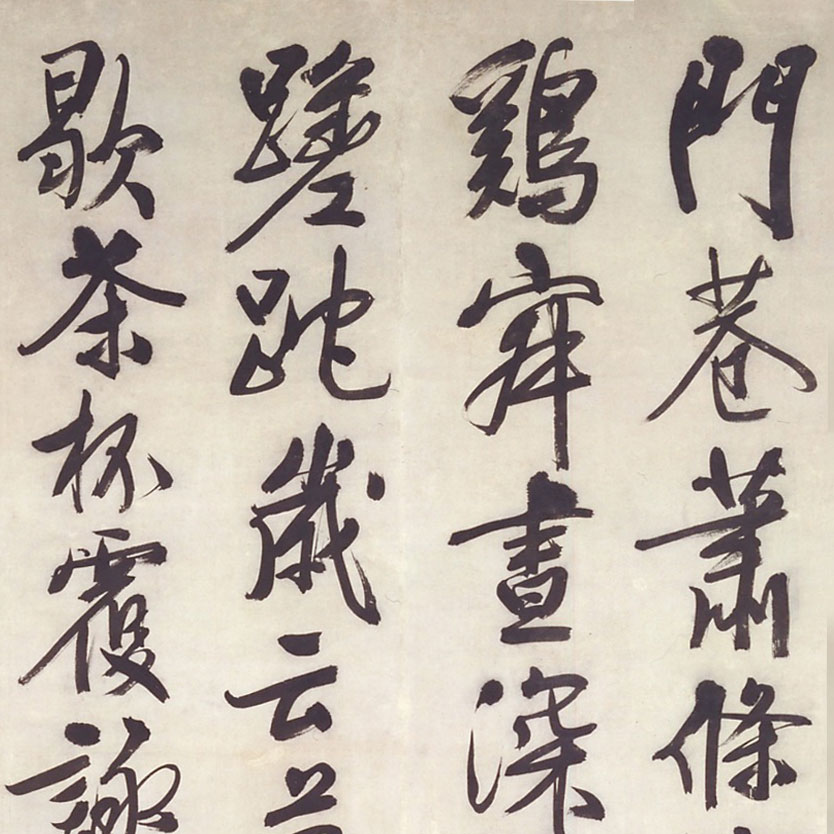 門巷蕭條
鷄晝深
蹉跎歲云
歇茶杯覆